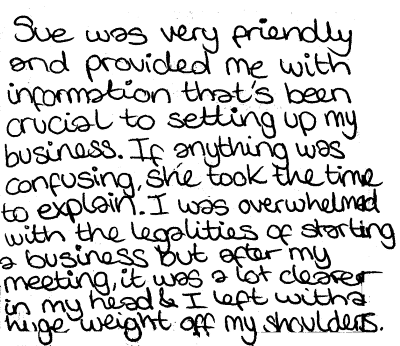 Sue was very friendly
and provided me with
information that's been
crucial to setting up my
business. If anything was
confusing, she took the time
to explain. I was overwhelmed
with the legalities of starting
a business but after my
meeting, it was a lot clearer
in my head & I left with a
huge weight off my shoulders.